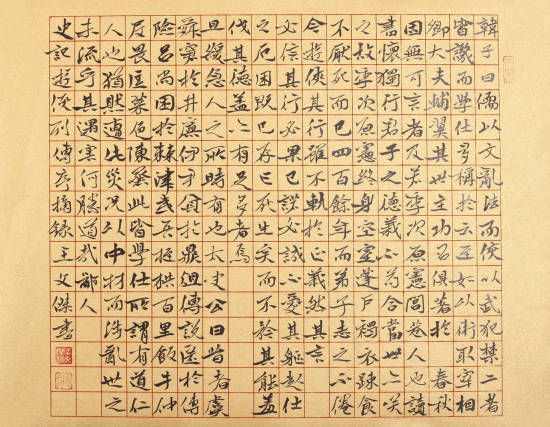 韓子曰儒以文亂法而俠以武犯禁二者
皆譏而學仕多稱於云至如以術取宰相
卿大夫輔翼其世主功名俱著於春秋
固無可言者及若季次原憲閭巷人也讀
書懷獨行君子之德義不苟合當世亦笑
之故季次原憲終身空室蓬戶褐衣疎食
不厭死而已四百餘年而弟子志之不倦
今游俠其行雖不軌於正義然其言
必信其行必果已諾必誠不愛其軀赴仕
之厄困既已存死生矣而不矜其能羞
伐其德蓋亦有足多者焉
且緩急人之所時有也太史公曰昔者虞
舜窘於井廩伊尹負於鼎俎傅說匿於傅
險呂尚困於棘津夷吾桎梏百里飯牛仲
尼畏匡菜色陳蔡此皆學仕所謂有道仁
人也猶然遭此災況以中材而涉亂世之
末流乎其遇害何勝道哉鄙人
史記游俠列傳序摘錄王文傑書